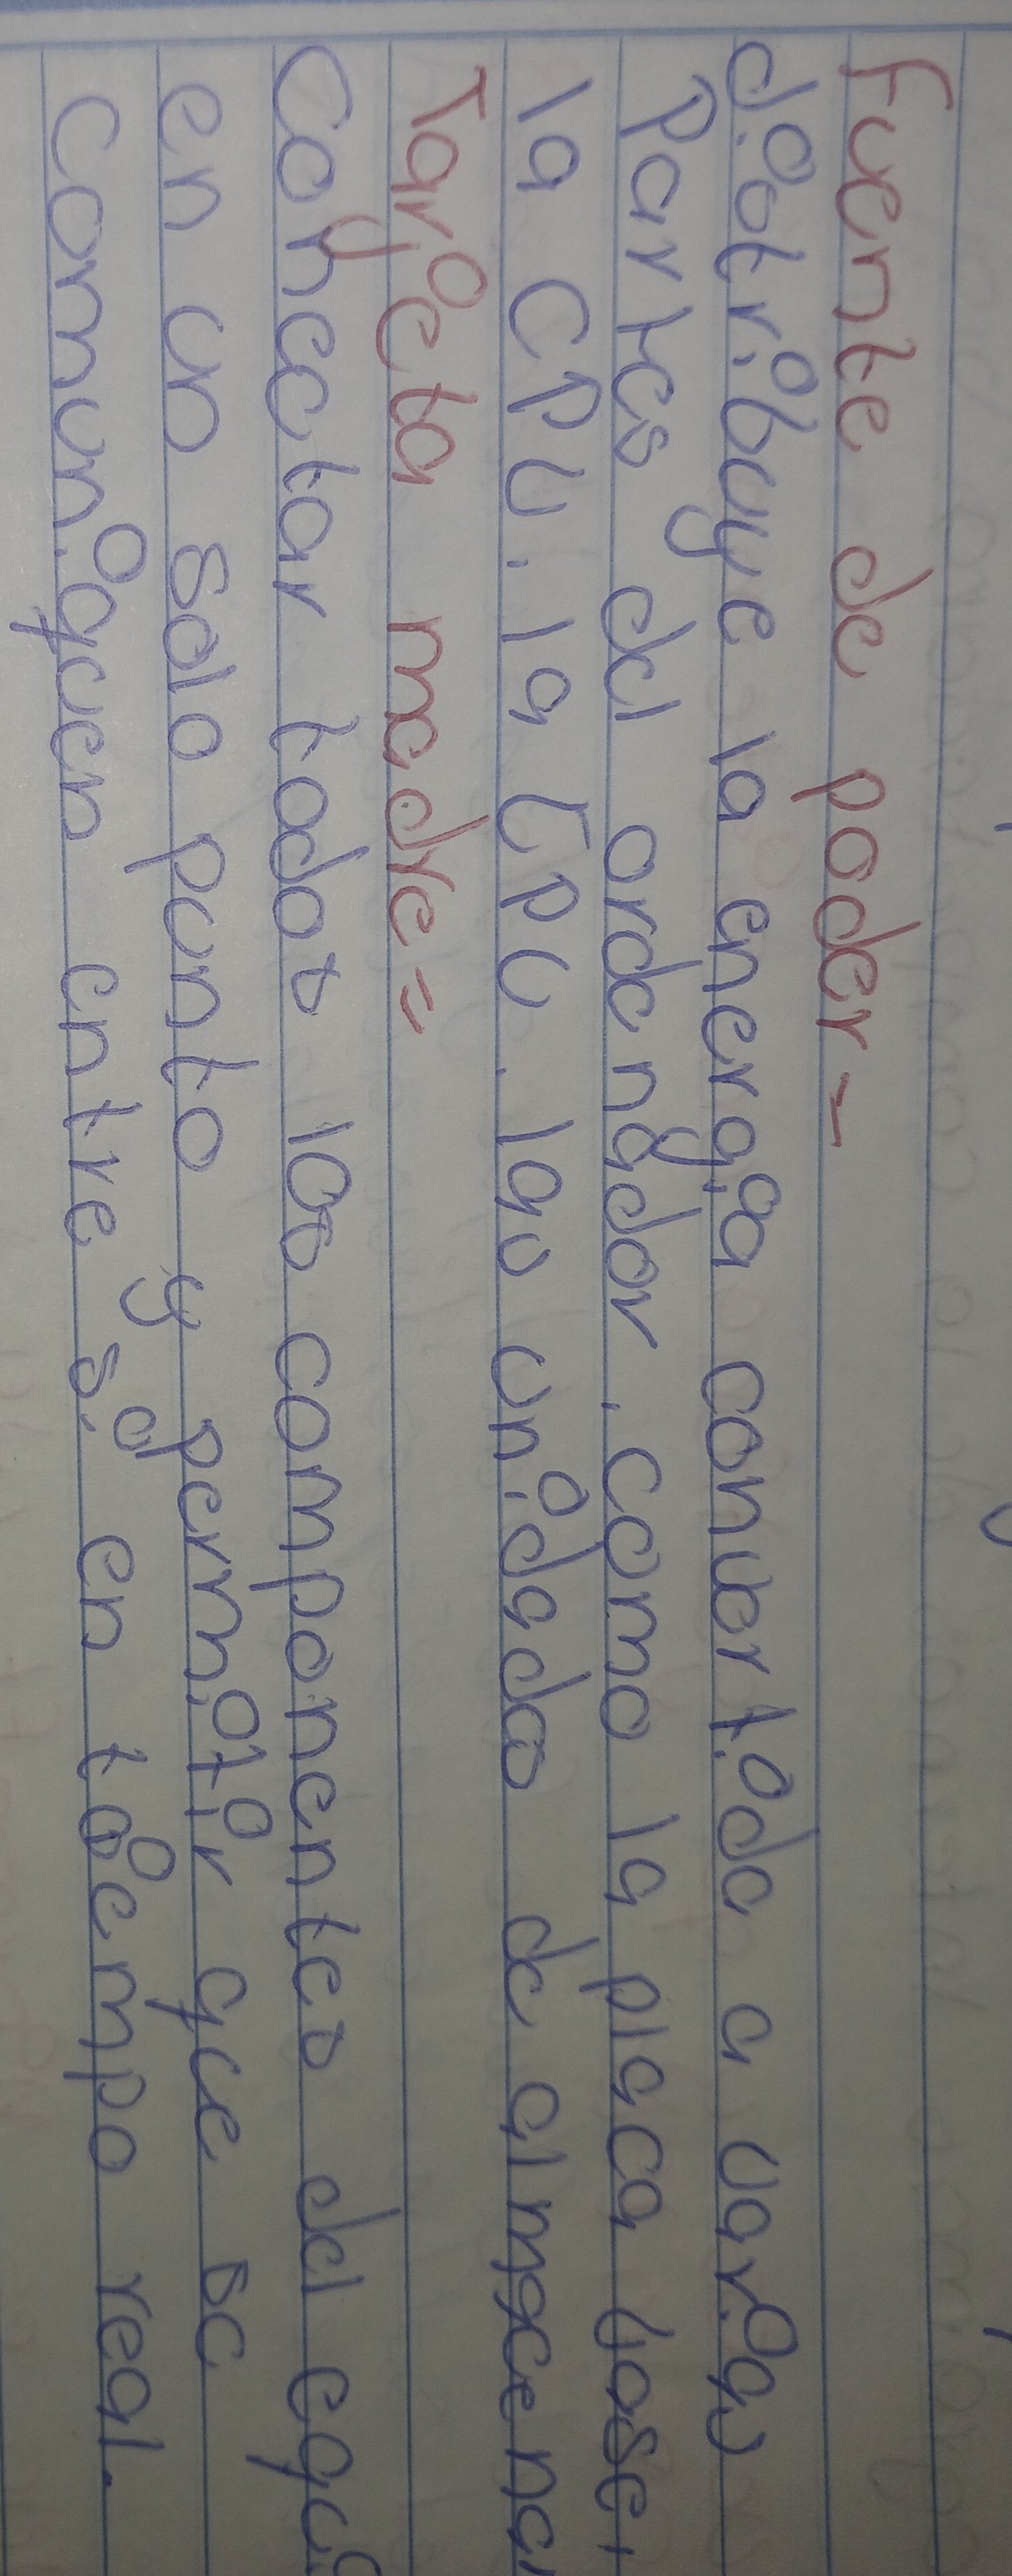 Fuente de poder=
distribuye la energia convertida a varias
Partes del ordenador, como la placa base,
la CPU, la CPU, las unidades de almacena
Tarjeta madre=
Conectar todos los componentes del equi
en un solo punto y permitir que se
comuniquen entre si en tiempo real.